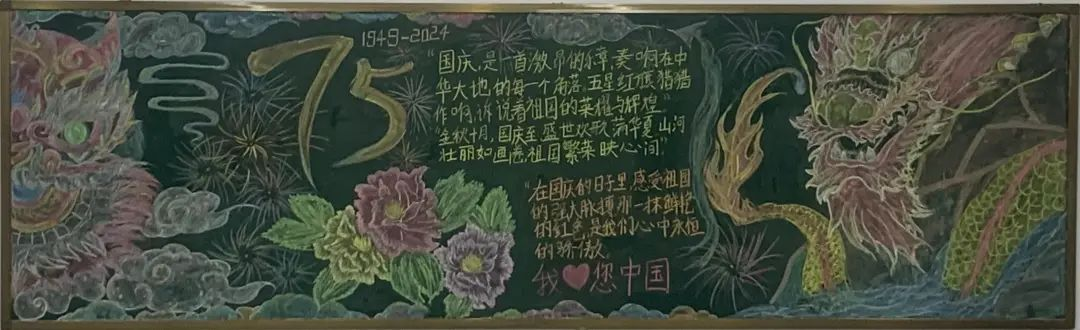 75
1949-2024
“国庆,是一首激昂的乐章,奏响在中
华大地的每一个角落,五星红旗猎猎
作响,诉说着祖国的荣耀与辉煌”
“金秋十月,国庆至,盛世欢歌满华夏,山河
壮丽如画卷,祖国繁荣映心间”
“在国庆的日子里,感受祖国
的强大脉搏,那一抹鲜艳
的红色,是我们心中永恒
的骄傲
我❤您中国